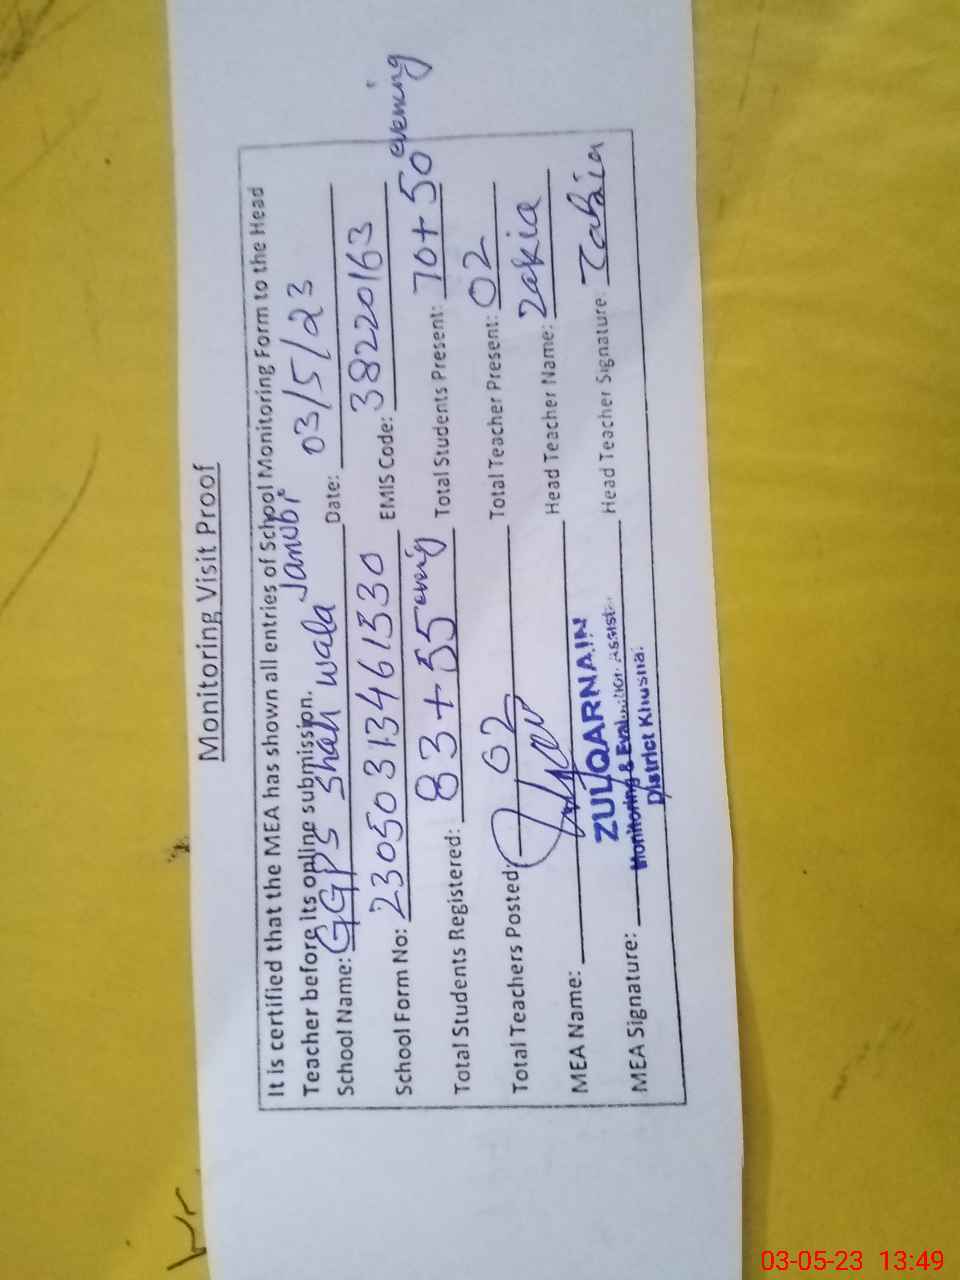 Monitoring Visit Proof
It is certified that the MEA has shown all entries of School Monitoring Form to the Head
Teacher before its online submission.
School Name: GGPS Shah wala Janubi Date: 03/5/23
School Form No: 23050313461330 EMIS Code: 38220163
Total Students Registered: 83+55 Total Students Present: 70+50 evening
Total Teachers Posted: 02 Total Teacher Present: 02
MEA Name: Head Teacher Name: Zakia
ZULQARNAIN
MEA Signature: Monitoring & Evaluation Assist Head Teacher Signature: Zakia
District Khusha
03-05-23 13:49